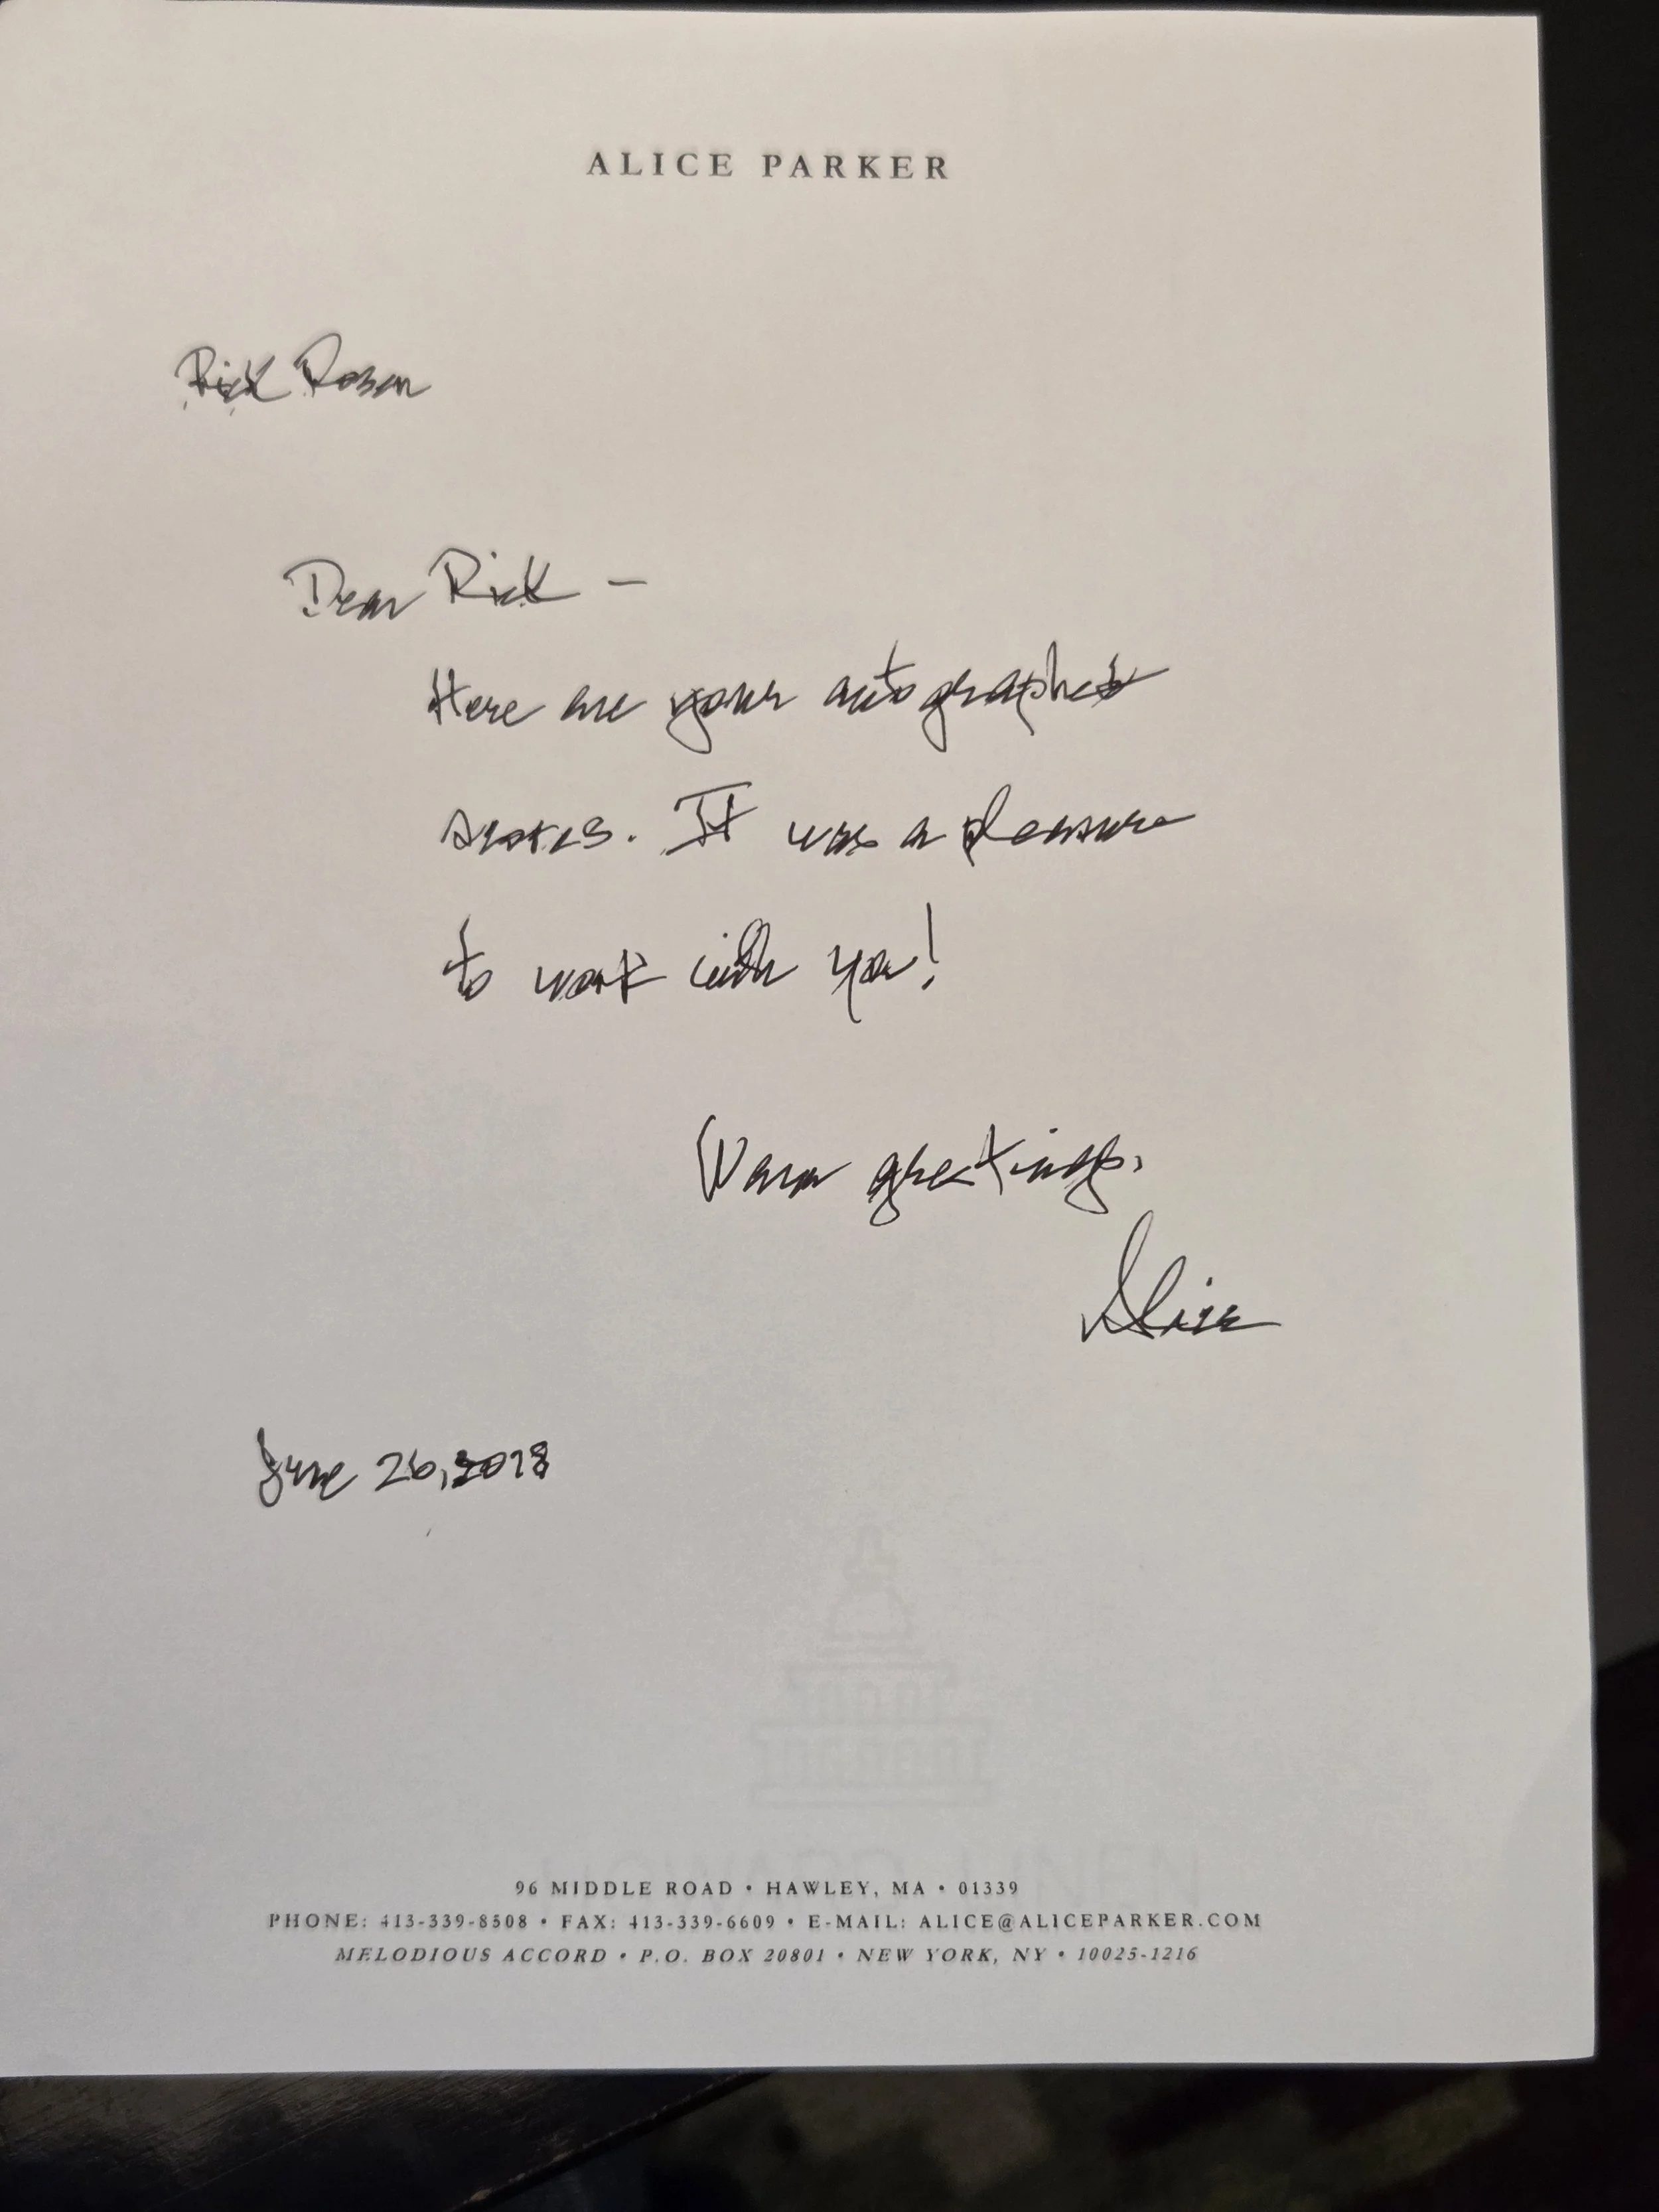 ALICE PARKER
Rick Rosen
Dear Rick –
Here are your autographed
scores. It was a pleasure
to work with you!
Warm greetings,
Alice
June 26, 2018
HOWARD LINEN
96 MIDDLE ROAD • HAWLEY, MA • 01339
PHONE: 413-339-8508 • FAX: 413-339-6609 • E-MAIL: ALICE@ALICEPARKER.COM
MELODIOUS ACCORD • P.O. BOX 20801 • NEW YORK, NY • 10025-1216